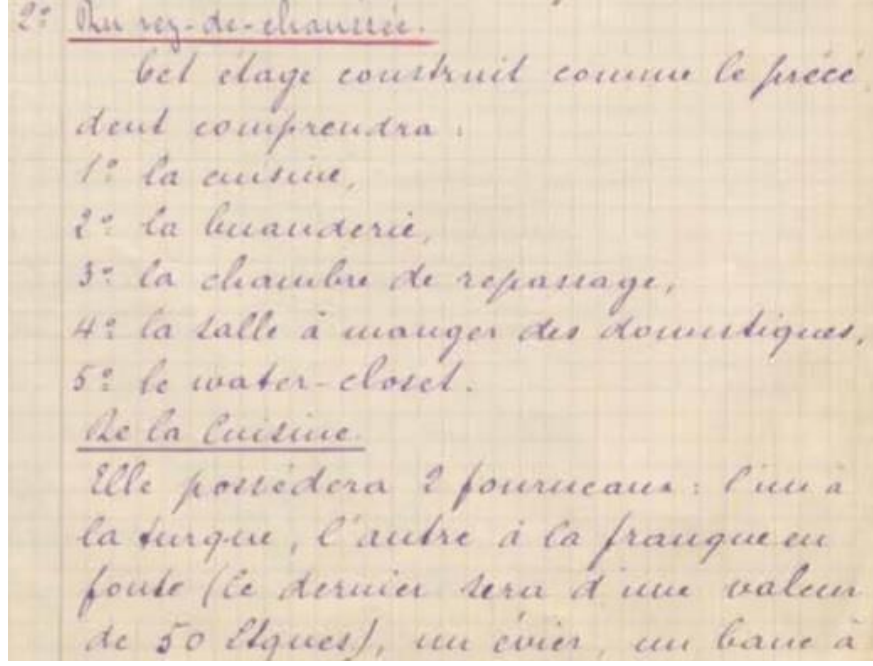 2º Du rez-de-chaussée.
Cet étage construit comme le précé
dent comprendra :
1º la cuisine,
2º la buanderie,
3º la chambre de repassage,
4º la salle à manger des domestiques,
5º le water-closet.
De la Cuisine.
Elle possèdera 2 fourneaux : l'un à
la turque, l'autre à la franque en
fonte (le dernier sera d'une valeur
de 50 Ltques), un évier, un banc à